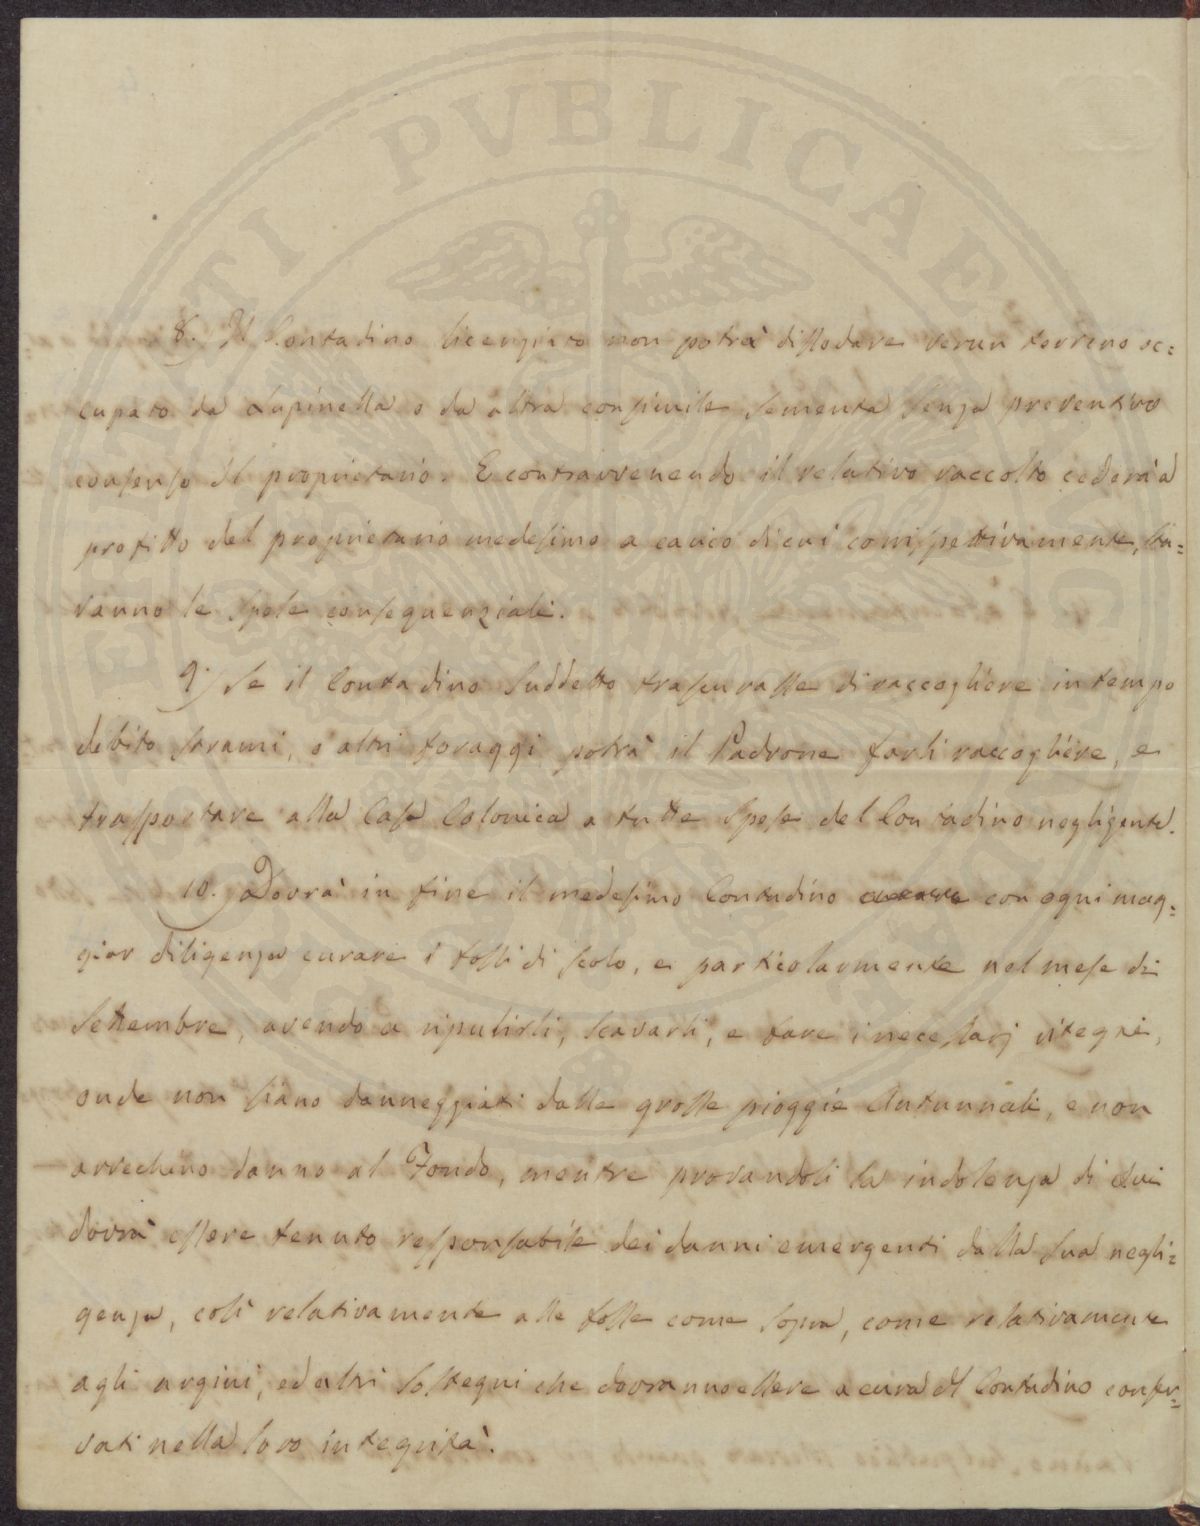 PVBLICAE
8. Il Contadino licenziato non potrà dissodare verun terreno oc=
cupato da Lupinella o da altra consimile sementa senza preventivo
consenso del proprietario. E contravvenendo il relativo raccolto cederà a
profitto del proprietario medesimo a carico di cui corrispettivamente, sta=
ranno le spese consequenziali.
9. Se il Contadino suddetto trascurasse di raccogliere in tempo
debito strami, o altri foraggi potrà il Padrone farli raccogliere, e
trasportare alla Casa Colonica a tutte spese del Contadino negligente.
10. Dovrà in fine il medesimo Contadino con ogni mag=
gior diligenza curare i fossi di scolo, e particolarmente nel mese di
Settembre, avendo a ripulirli, scavarli, e fare i necessarj ritegni,
onde non siano danneggiati dalle grosse pioggie Autunnali, e non
arrechino danno al Fondo, mentre provandosi la indolenza di Lui
dovrà essere tenuto responsabile dei danni emergenti dalla sua negli=
genza, così relativamente alle fosse come sopra, come relativamente
agli argini, ed altri sostegni che dovranno essere a cura del Contadino conser=
vati nella loro integrità.